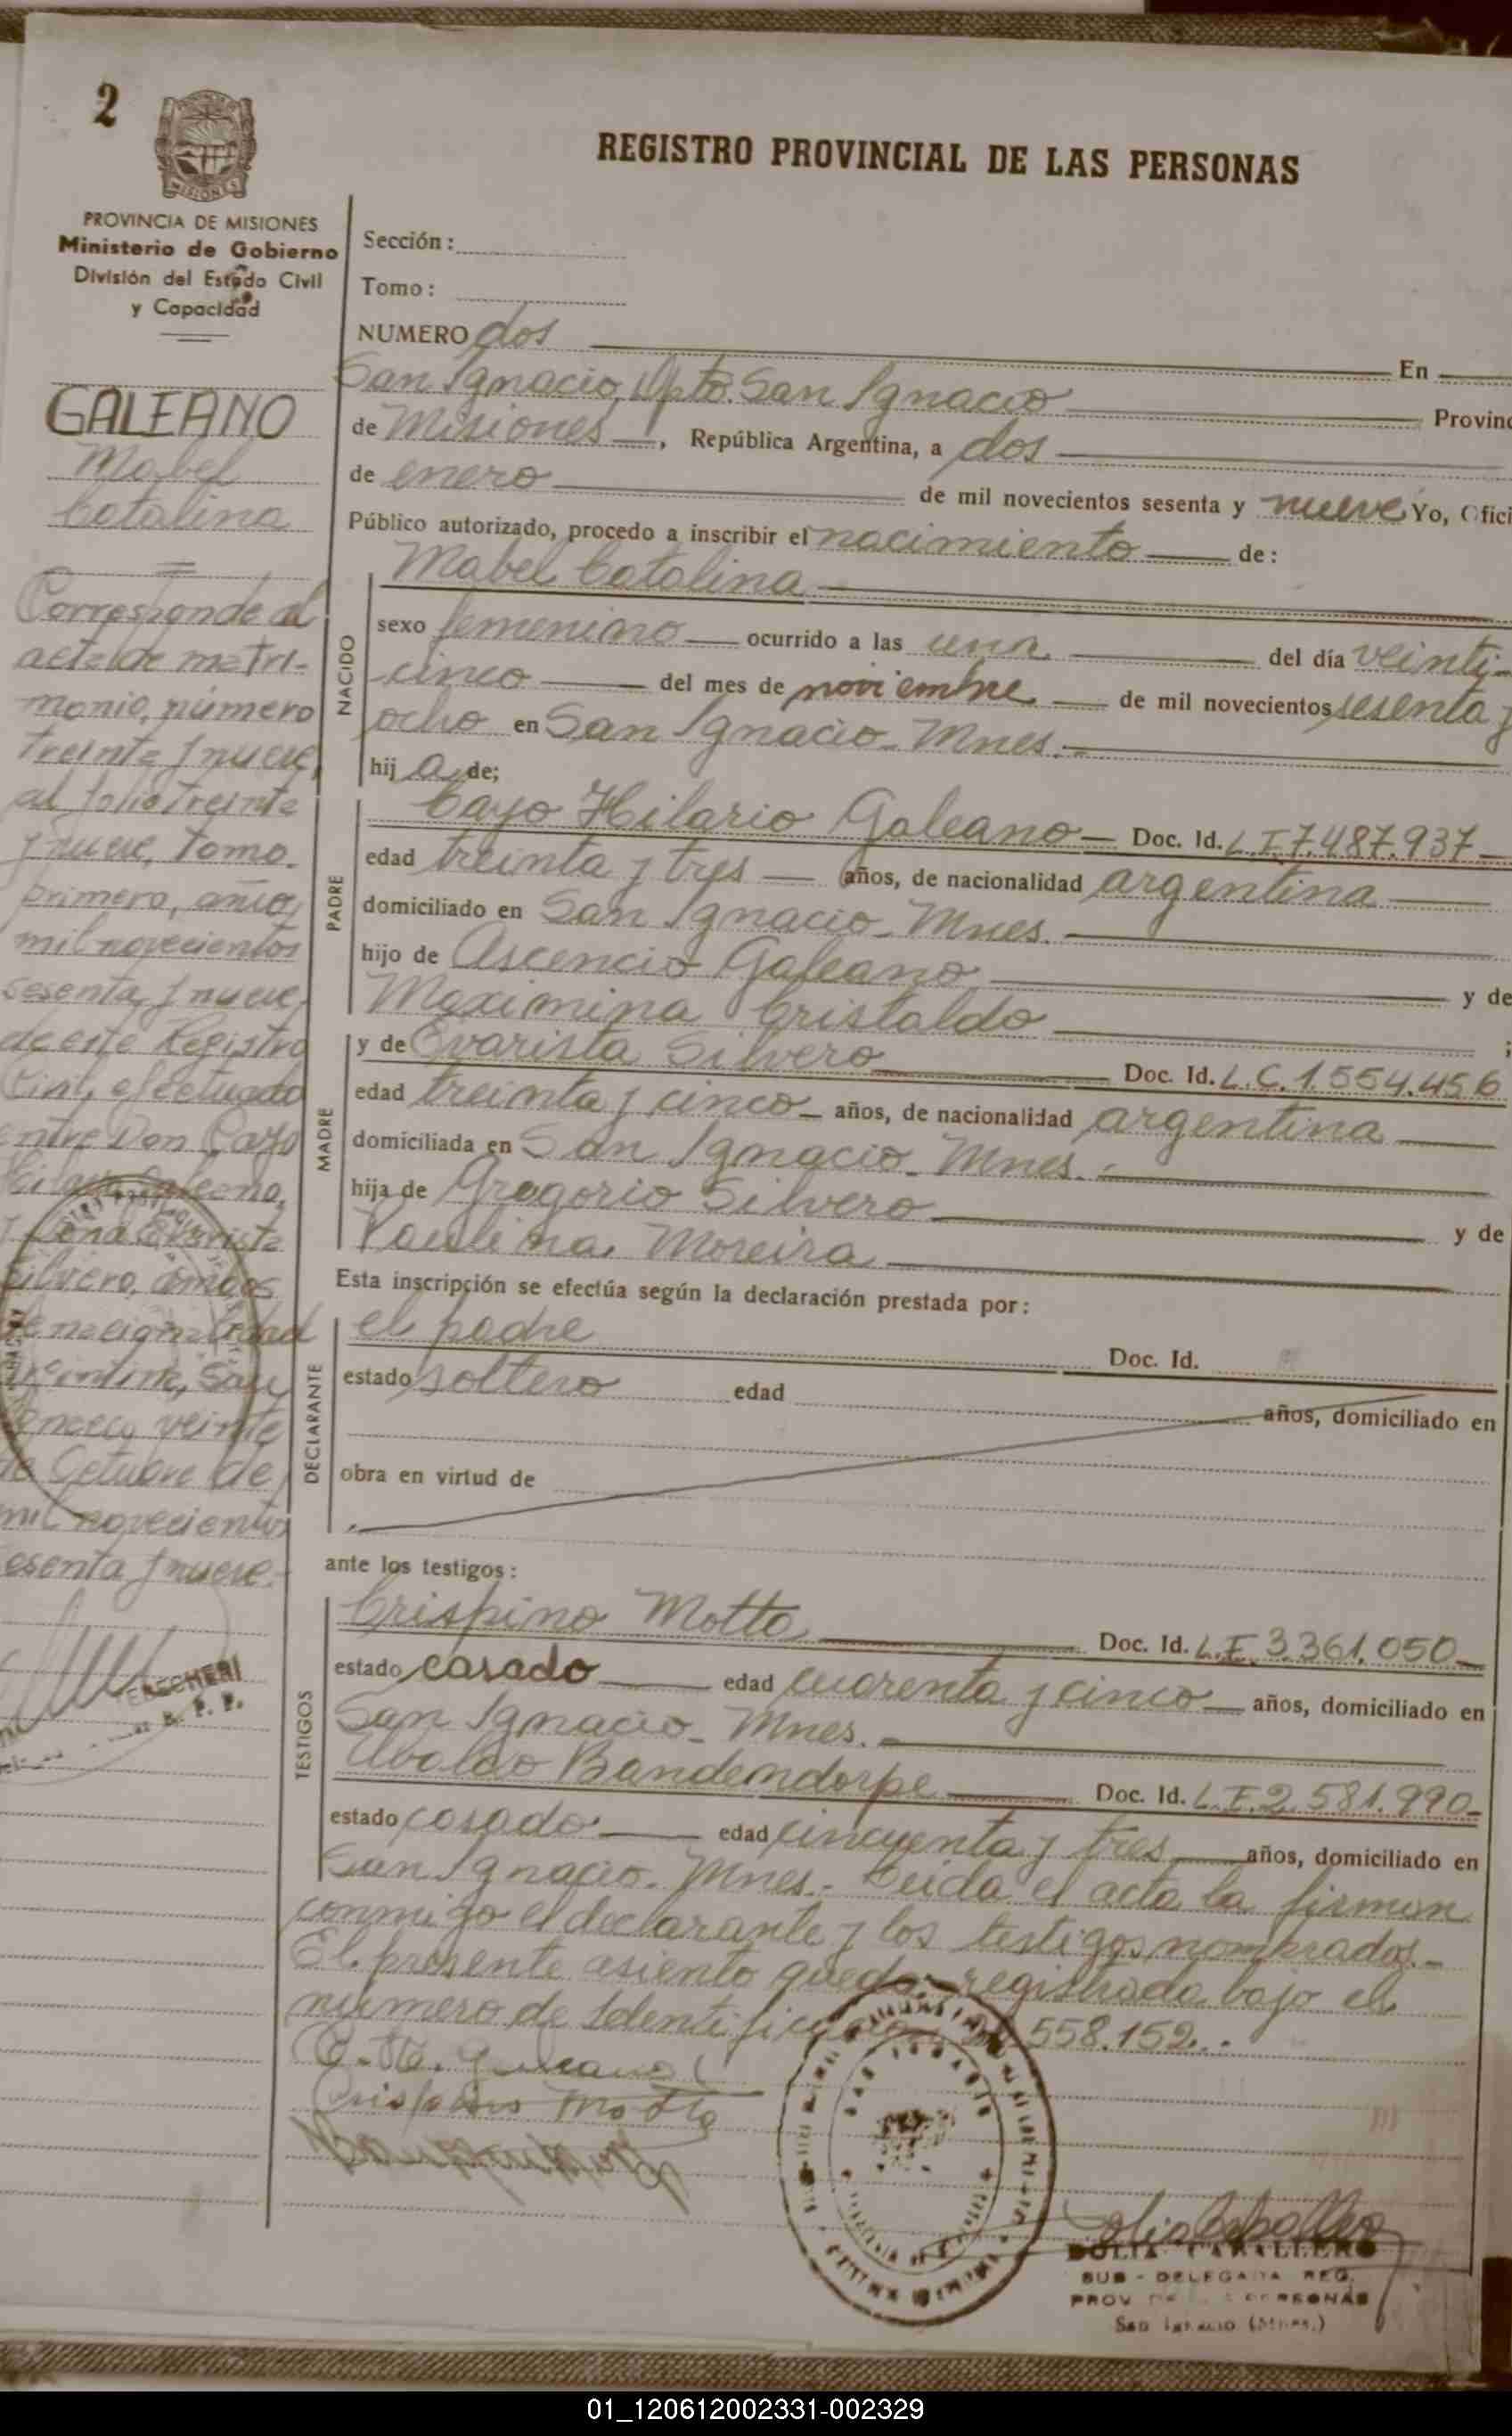 2
REGISTRO PROVINCIAL DE LAS PERSONAS
MISIONES
PROVINCIA DE MISIONES
Ministerio de Gobierno
División del Estado Civil
y Capacidad
GALEANO
Mabel
Catalina
Corresponde al
acta de matri-
monio, número
treinta y nueve,
al folio treinta
y nueve, tomo
primero, año
mil novecientos
sesenta y nueve,
de este Registro
Civil, efectuado
entre Don Cayo
Hilario Galeano,
y Doña Evarista
Silvero, ambos
de nacionalidad
argentina, San
Ignacio, veinte
de Octubre de
mil novecientos
sesenta y nueve.
Sección:
Tomo:
NUMERO dos En
San Ignacio, Dpto. San Ignacio Provinc
de Misiones, República Argentina, a dos
de enero de mil novecientos sesenta y nueve Yo, Ofici
Público autorizado, procedo a inscribir el nacimiento de:
NACIDO
Mabel Catalina
sexo femenino ocurrido a las una del día veinti-
cinco del mes de noviembre de mil novecientos sesenta y
ocho en San Ignacio - Mnes.
hij a de;
PADRE
Cayo Hilario Galeano Doc. Id. L.I. 7.487.937
edad treinta y tres años, de nacionalidad argentina
domiciliado en San Ignacio - Mnes.
hijo de Ascencio Galeano y de
Maximina Cristaldo ;
MADRE
y de Evarista Silvero Doc. Id. L.C. 1.554.456
edad treinta y cinco años, de nacionalidad argentina
domiciliada en San Ignacio - Mnes.
hija de Gregorio Silvero y de
Paulina Moreira
Esta inscripción se efectúa según la declaración prestada por:
DECLARANTE
el padre Doc. Id.
estado soltero edad años, domiciliado en
obra en virtud de
ante los testigos:
TESTIGOS
Crispino Motta Doc. Id. L.E. 3.361.050
estado casado edad cuarenta y cinco años, domiciliado en
San Ignacio - Mnes.
Ubaldo Bandendorpe Doc. Id. L.E. 2.581.990
estado casado edad cincuenta y tres años, domiciliado en
San Ignacio - Mnes.- Leida el acta la firman
conmigo el declarante y los testigos nombrados.-
El presente asiento queda registrada bajo el
número de Identificación 558.152.-
C. H. Galeano
Crispino Motta
DOLIA CABALLERO
SUB - DELEGADA REG.
PROV DE LAS PERSONAS
San Ignacio (Mnes.)
01_120612002331-002329